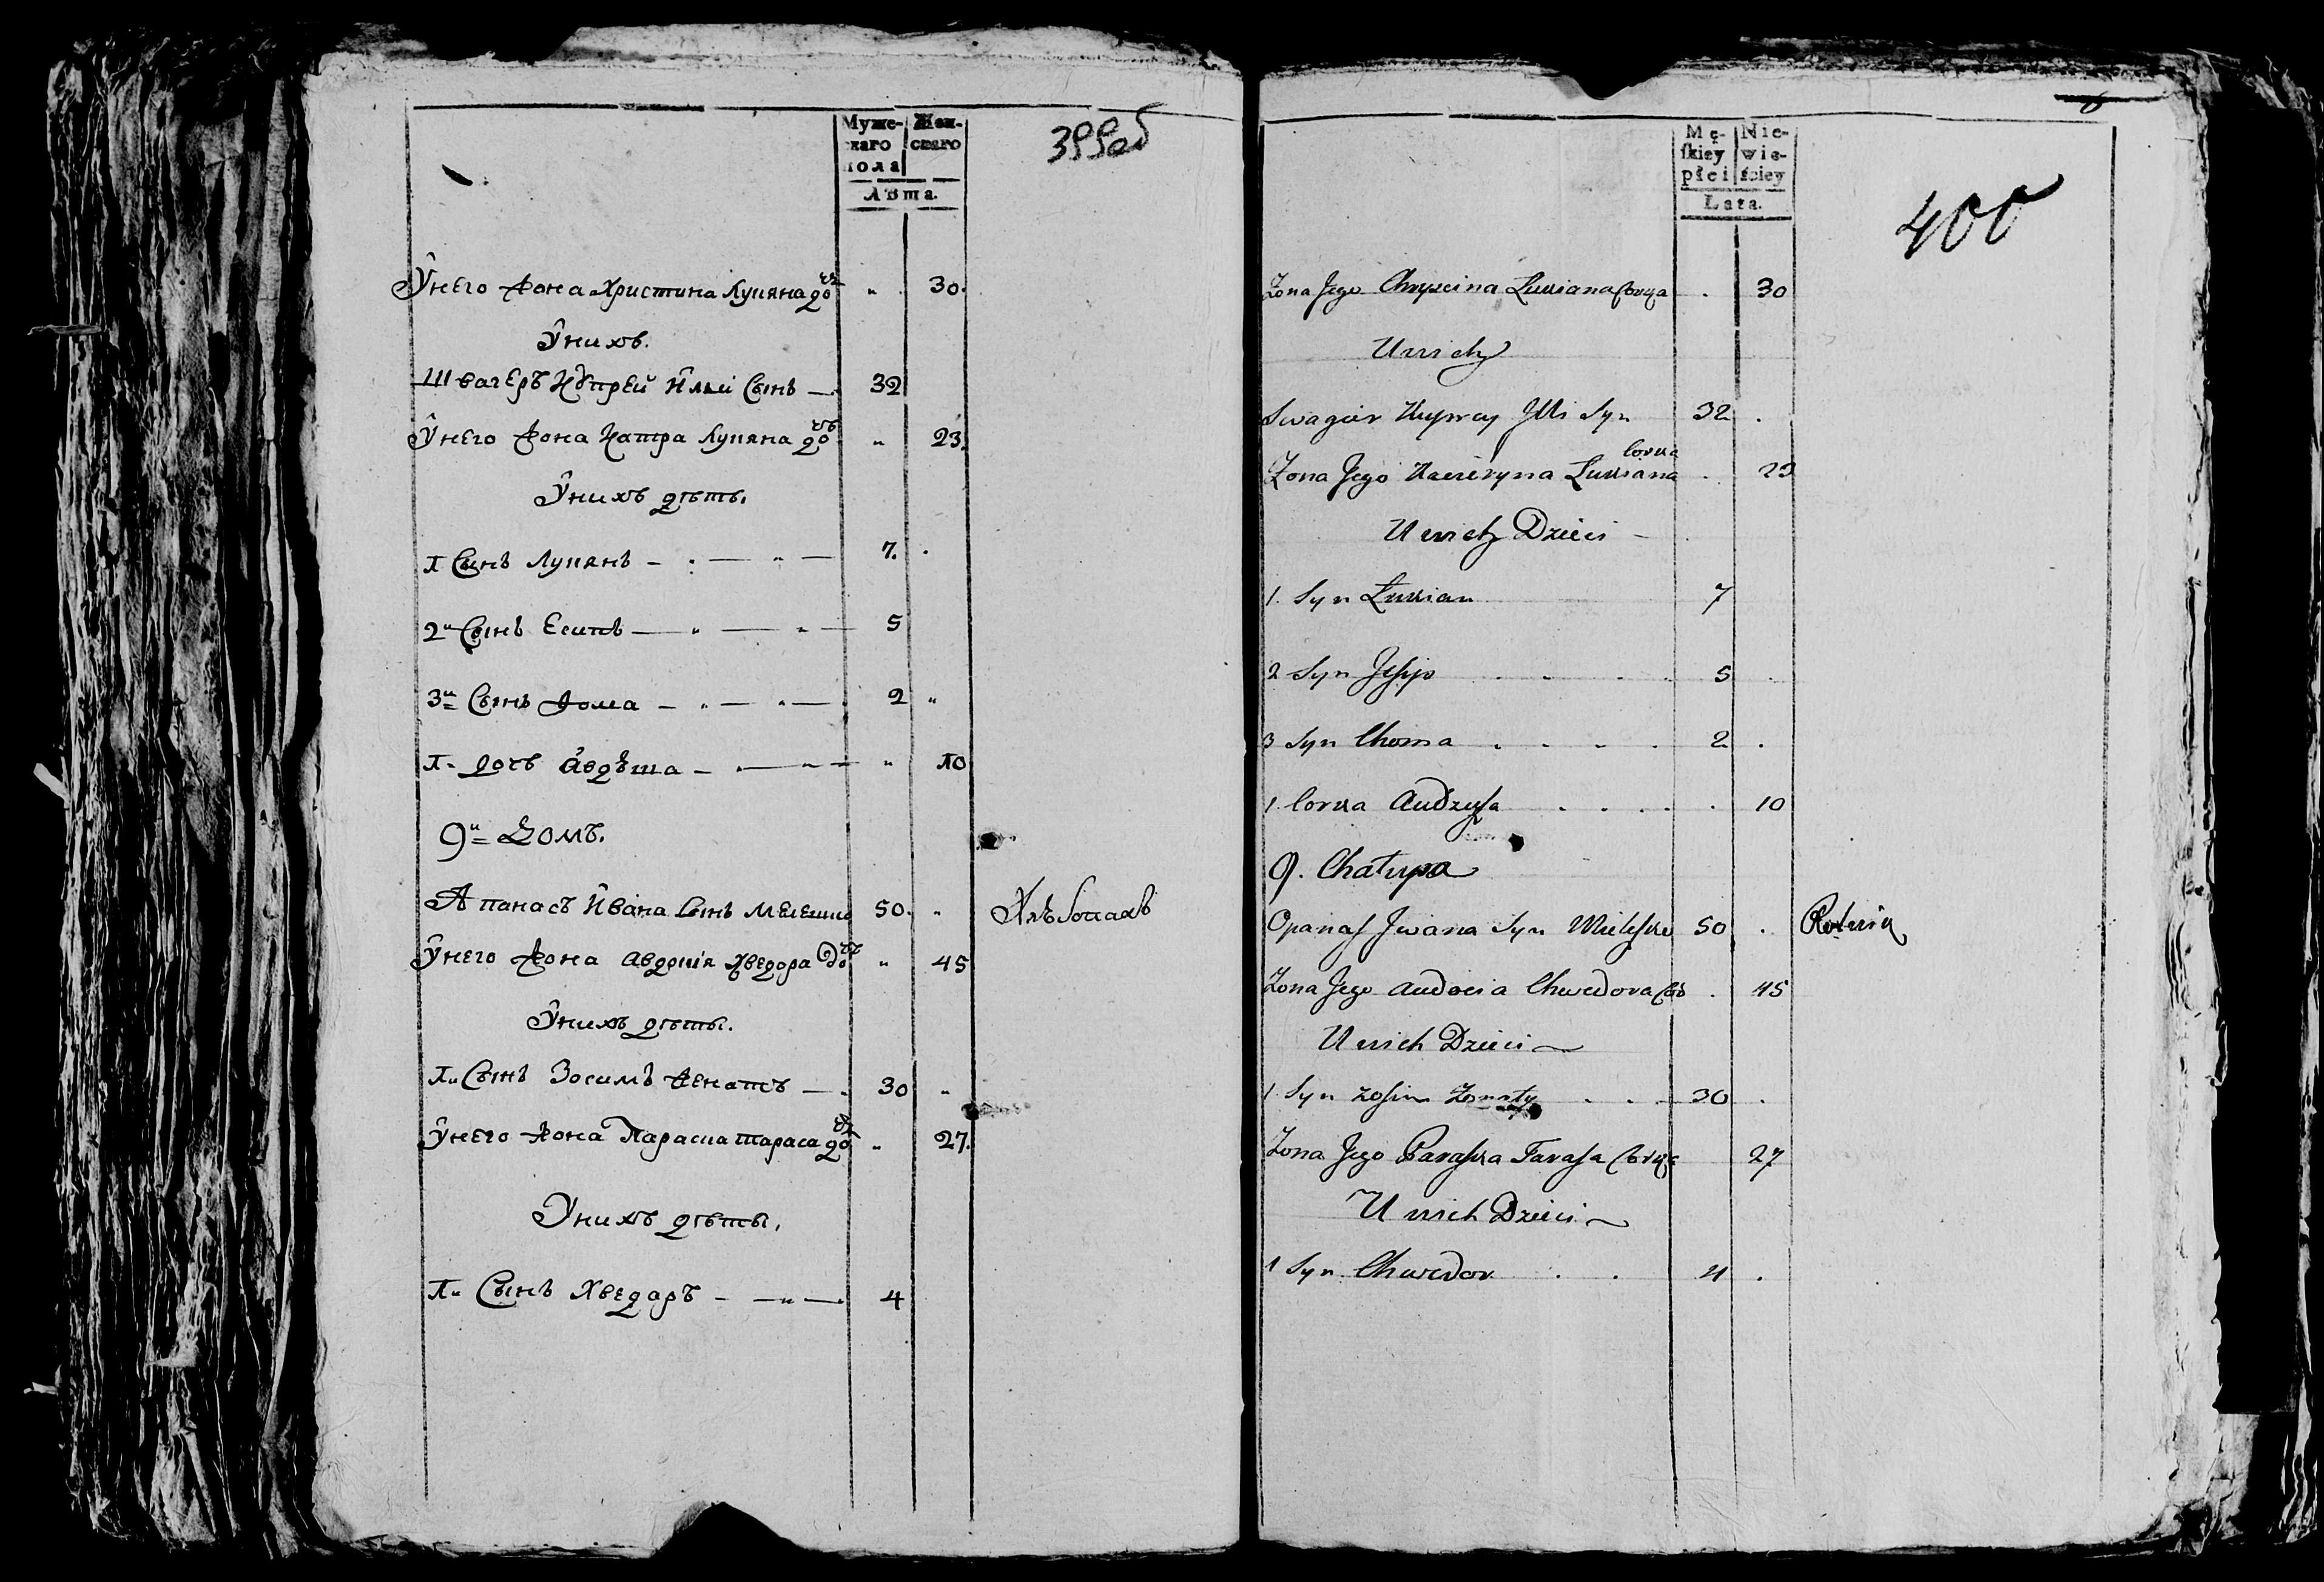 Муже-скаго пола Жен-скаго
Лѣта.
399об
Ў него жона Христина Лукяна дочь " 30.
Ў нихъ.
Швагеръ Купрей Ильи Сынъ — 32
Ў него жона Катра Лукяна дочь " 23.
Ў нихъ дѣти.
1 Сынъ Лукянъ — 7.
2й Сынъ Есипъ — " — " — 5
3й Сынъ Хома — " — " — 2 "
1. дочь Авдѣша — " 10
9й Домъ.
Апанасъ Ивана Сынъ Мелешко 50. " Хлѣбопахъ
Ў него жона Авдоція Хведора дочь " 45
Ў нихъ дѣти.
1й Сынъ Зосимъ женатъ — 30 "
Ў него жона Параска Тараса дочь " 27.
Ў нихъ дѣти.
1й Сынъ Хведаръ — " — 4
Mę-skiey płci Nie-wie-ściey
Lata.
400
Zona Jego Chryscina Lukiana Corka . 30
U nich
Swagier Kuprey Illi Syn 32 .
Zona Jego Kateryna Lukiana Corka . 23
U nich Dzieci
1. Syn Lukian 7
2 Syn Jesip . . . . 5
3 Syn Choma . . . . 2 .
1. Corka Audzysza . . . . . 10
9. Chałupa
Opanas Jwana Syn Mieleszko 50 . Rolnik
Zona Jego Audocia Chwedora Cor . 45
U nich Dzieci
1. Syn Zosim Zonaty . . . 30 .
Zona Jego Paraska Tarasa Corka 27
U nich Dzieci
1 Syn Chwedor . . 4 .